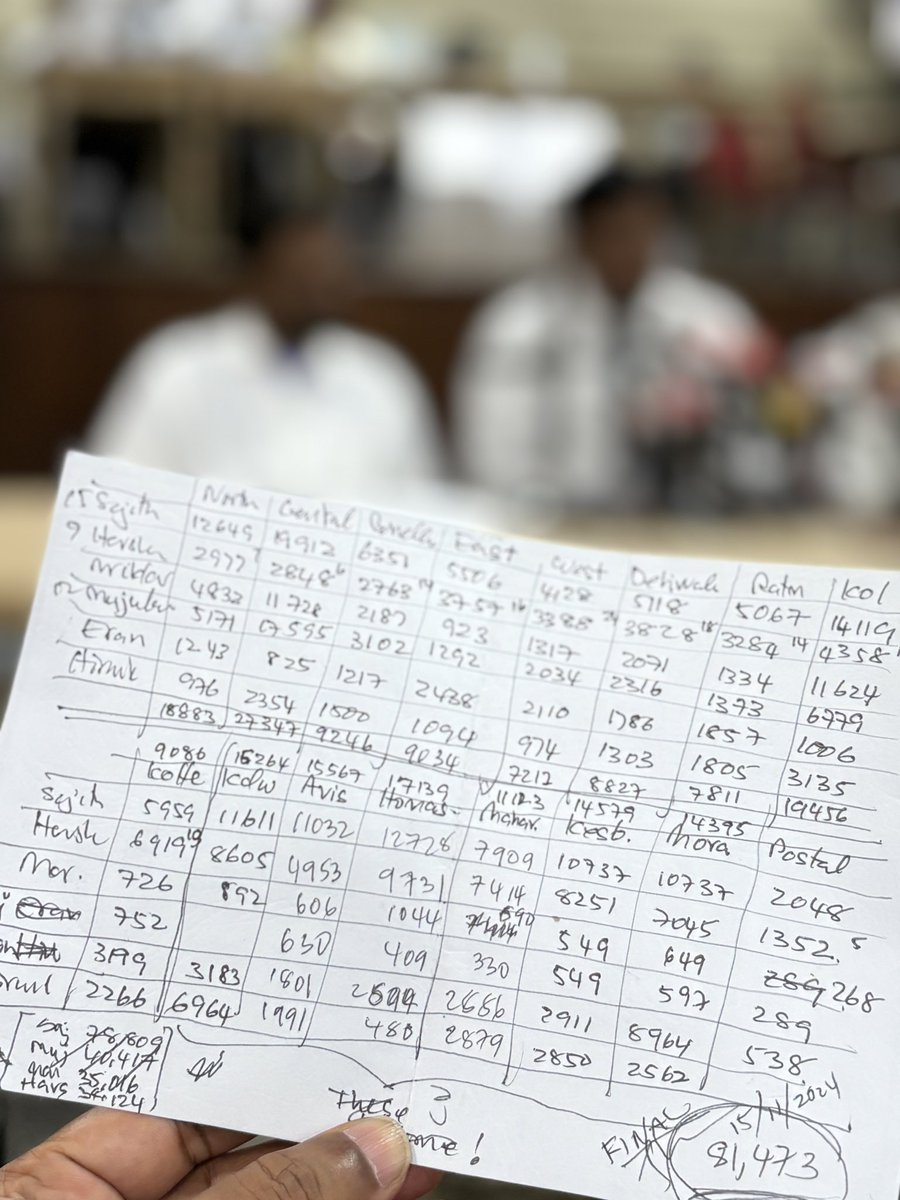 North Central East West Dehiwala Ratm Kol
15 Sajith 12649 19912 6351 5506 4128 5718 5067 14119
9 Hersha 2977 2848 2768 3757 3388 3828 3284 4358
4832 11728 2187 923 1317 2071 1334 11624
Mujubu 5171 17595 3102 1292 2034 2316 1373 6779
Eran 1243 825 1217 2438 2110 1786 1857 1006
Hirunk 976 2354 1500 1094 974 1303 1805 3135
18883 27347 9246 9034 7212 8827 7811 19456
9086 15264 15567 17139 11123 14579 14395
Kotte Kolw Avis Homa Mahar. Kesb. Mora Postal
Sajith 5959 11611 11032 12728 7909 10737 10737 2048
Hersh 6919 19 8605 4953 9731 7414 8251 7045 1352
Mor. 726 892 606 1044 690 549 649 268
752 630 409 330 549 597 289
3199 3183 1801 2886 2911 8964 538
2266 6964 1991 480 2879 2850 2562
Saj 78,809
Muj 40,417
35,016
Hars
These 3
!
FINAL
15/11/2024
81,473